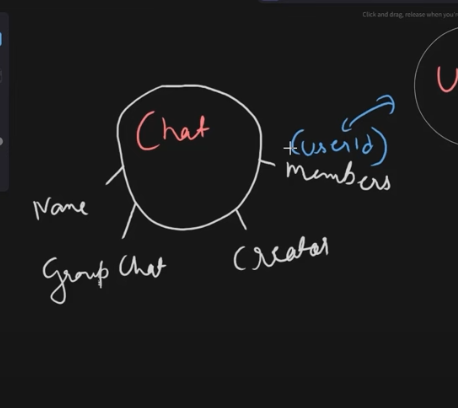 Click and drag, release when you'r
U
Chat
(userId)
members
Name
Group Chat
Creator